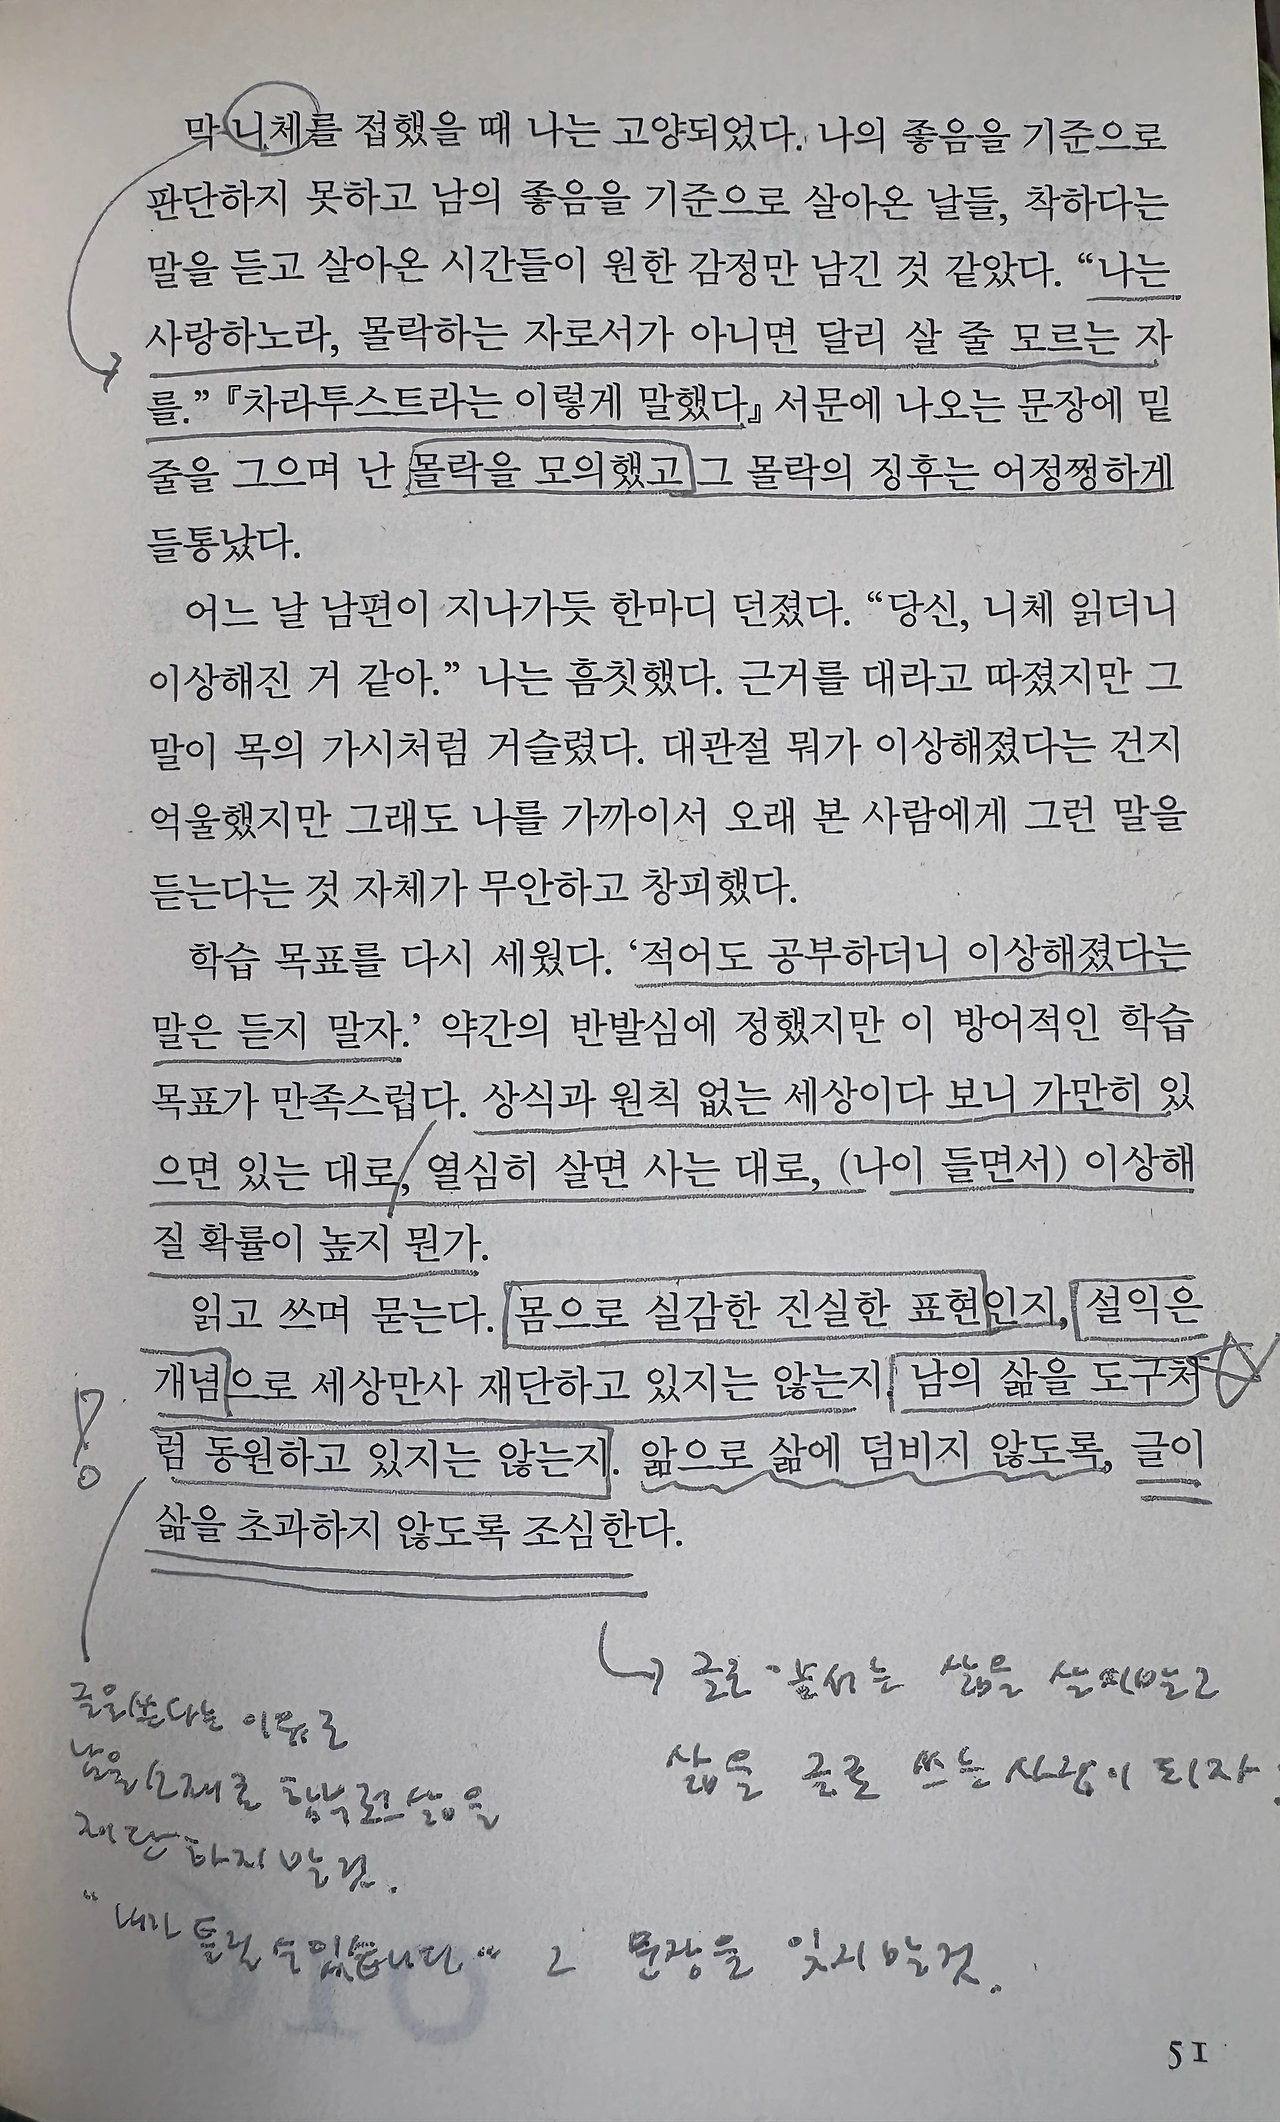 막 니체를 접했을 때 나는 고양되었다. 나의 좋음을 기준으로
판단하지 못하고 남의 좋음을 기준으로 살아온 날들, 착하다는
말을 듣고 살아온 시간들이 원한 감정만 남긴 것 같았다. “나는
사랑하노라, 몰락하는 자로서가 아니면 달리 살 줄 모르는 자
를.”『차라투스트라는 이렇게 말했다』 서문에 나오는 문장에 밑
줄을 그으며 난 몰락을 모의했고 그 몰락의 징후는 어정쩡하게
들통났다.
어느 날 남편이 지나가듯 한마디 던졌다. “당신, 니체 읽더니
이상해진 거 같아.” 나는 흠칫했다. 근거를 대라고 따졌지만 그
말이 목의 가시처럼 거슬렸다. 대관절 뭐가 이상해졌다는 건지
억울했지만 그래도 나를 가까이서 오래 본 사람에게 그런 말을
듣는다는 것 자체가 무안하고 창피했다.
학습 목표를 다시 세웠다. ‘적어도 공부하더니 이상해졌다는
말은 듣지 말자.’ 약간의 반발심에 정했지만 이 방어적인 학습
목표가 만족스럽다. 상식과 원칙 없는 세상이다 보니 가만히 있
으면 있는 대로, 열심히 살면 사는 대로, (나이 들면서) 이상해
질 확률이 높지 뭔가.
읽고 쓰며 묻는다. 몸으로 실감한 진실한 표현인지, 설익은
개념으로 세상만사 재단하고 있지는 않는지. 남의 삶을 도구처
럼 동원하고 있지는 않는지. 앎으로 삶에 덤비지 않도록, 글이
삶을 초과하지 않도록 조심한다.
글로 앞서는 삶을 살지말고
삶을 글로 쓰는 사람이 되자
글을쓴다는 이유로
남을 소재로 함부로 삶을
재단하지 말 것.
“내가 틀릴 수 있습니다” 그 문장을 잊지 말 것.
51